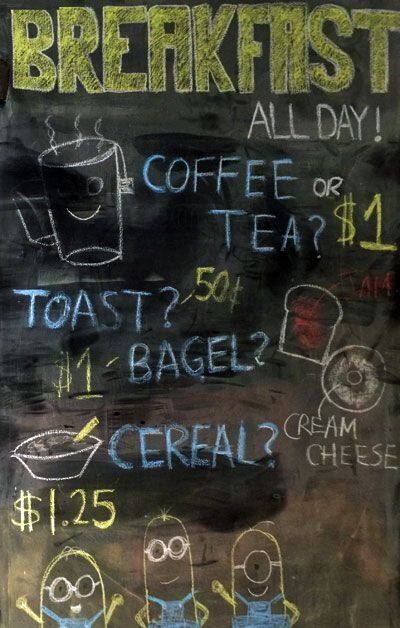 BREAKFAST
ALL DAY!
COFFEE OR
TEA? $1
TOAST? 50¢
JAM
$1 BAGEL?
CREAM
CHEESE
CEREAL?
$1.25